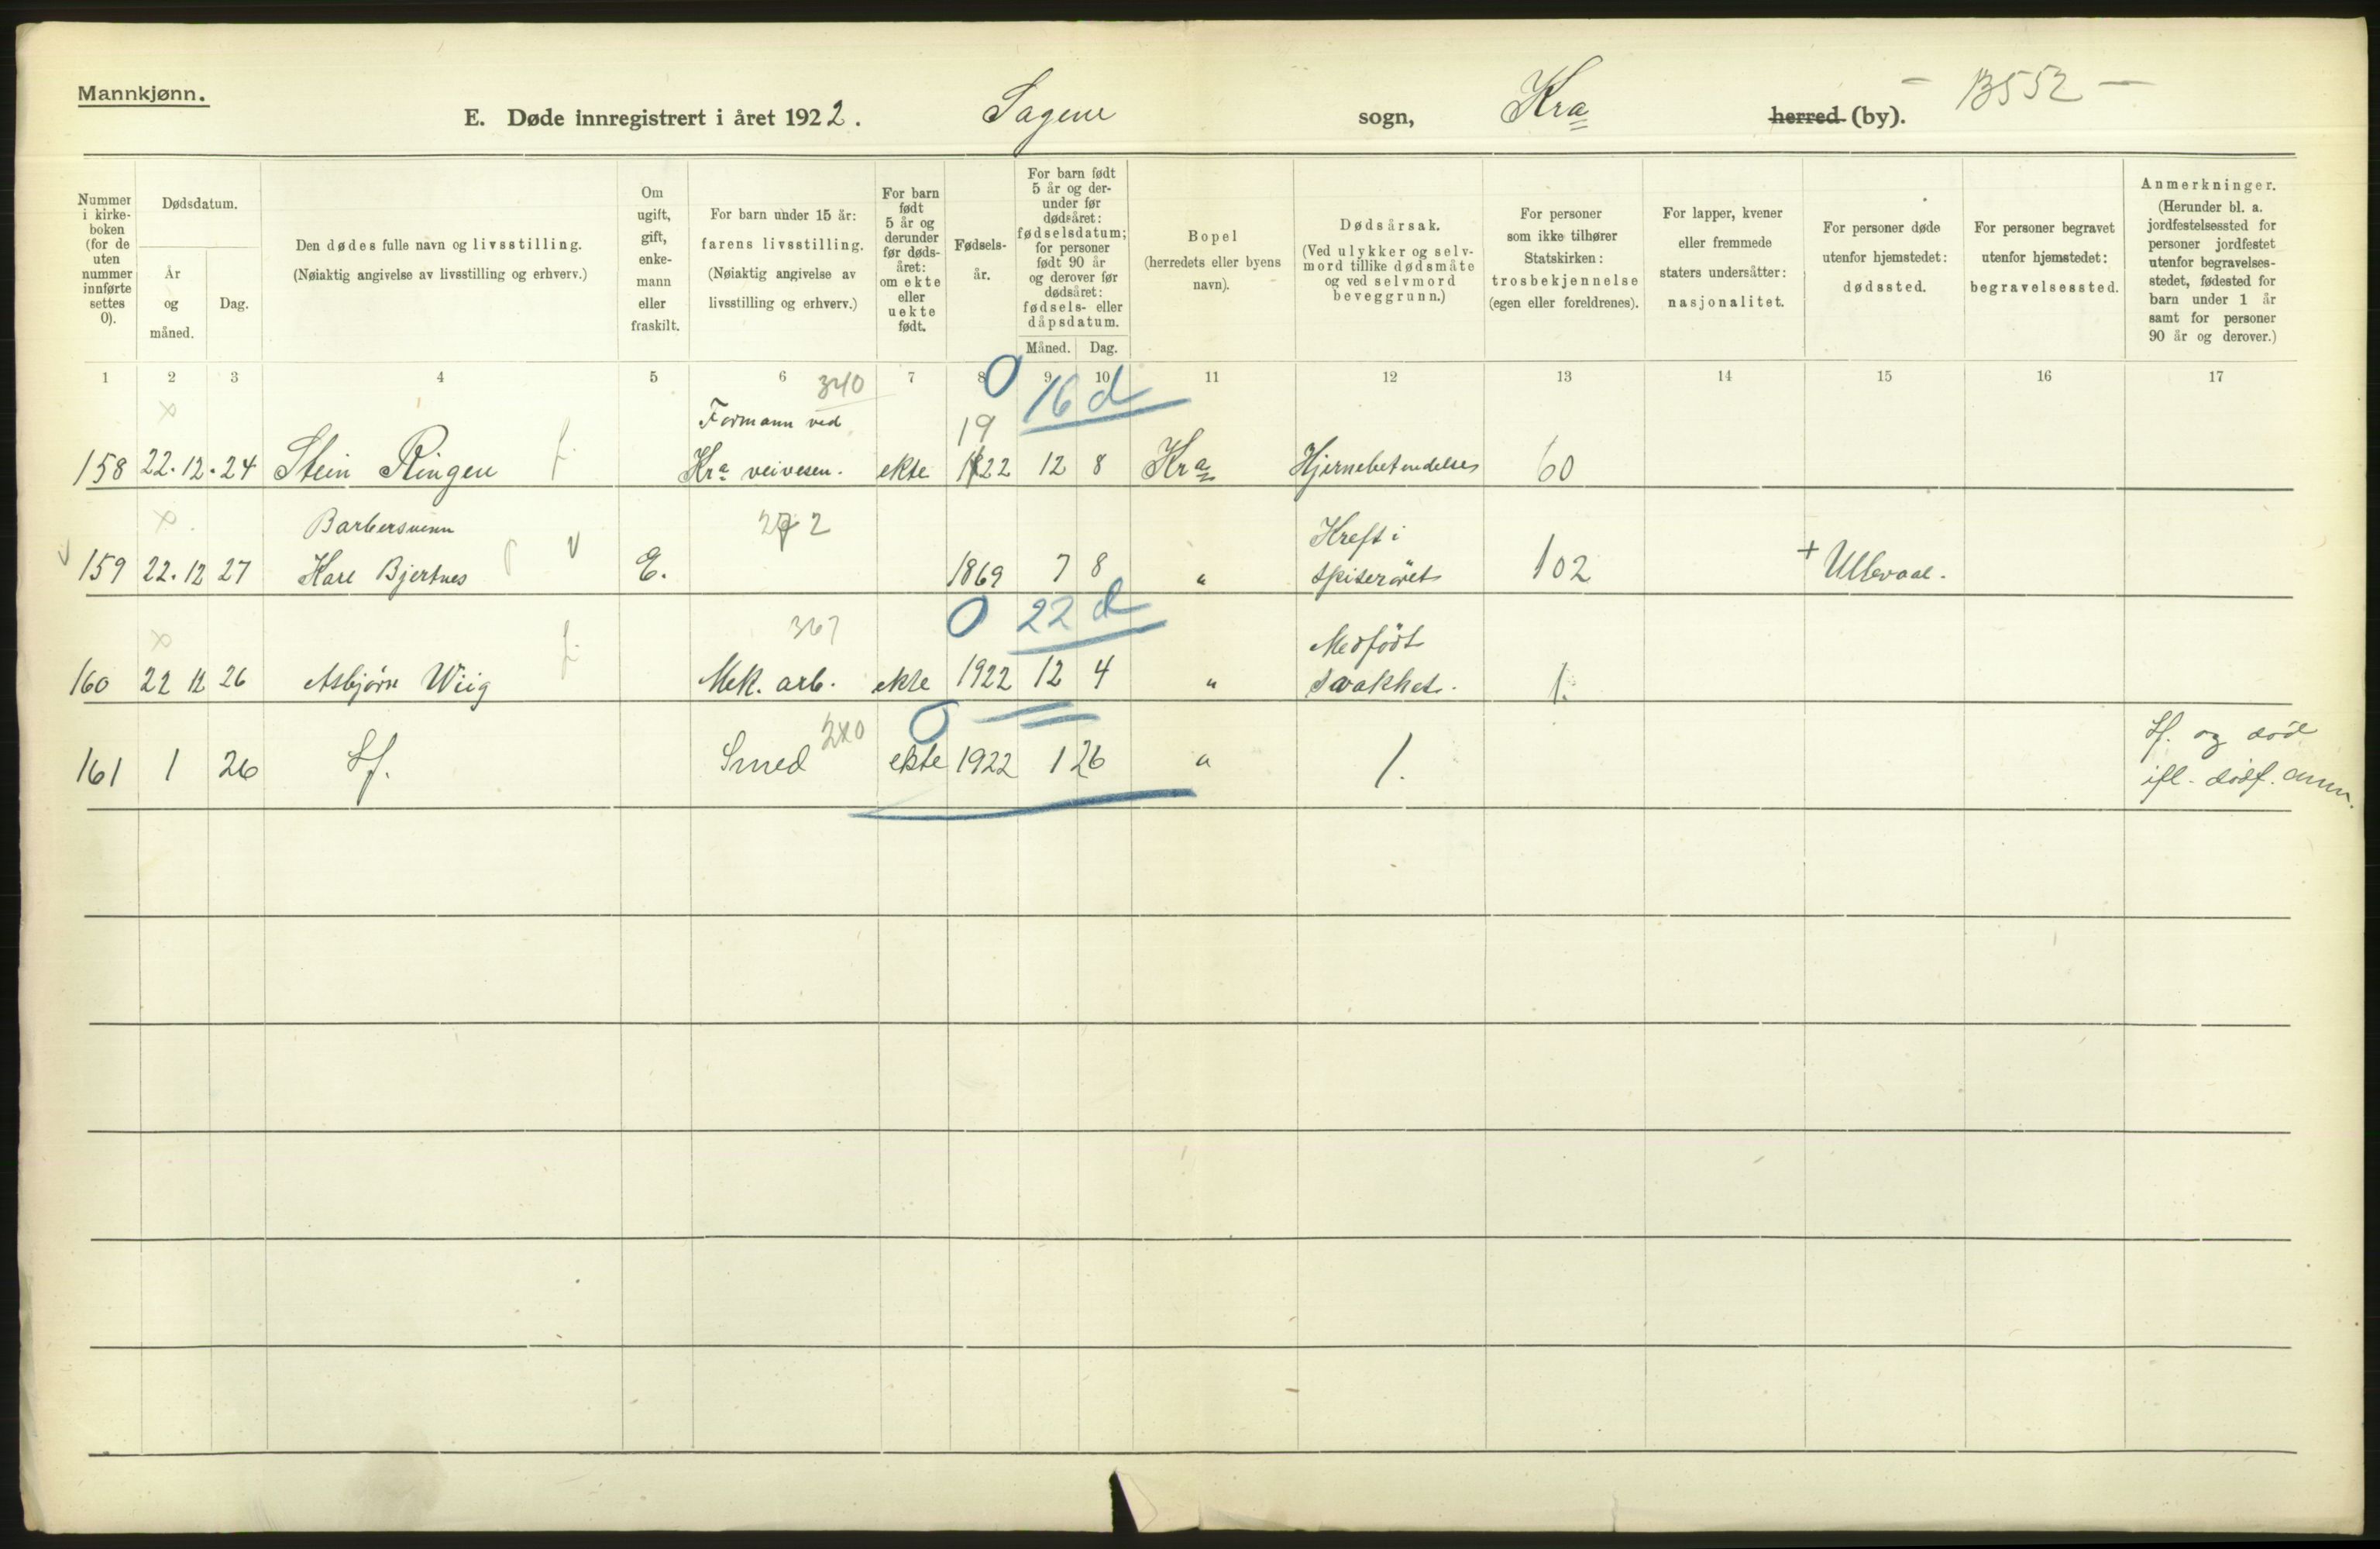 Mannkjønn.
E. Døde innregistrert i året 1922. Sagene sogn, Kra herred (by). — B552 —
Nummer i kirke- boken (for de uten nummer innførte settes 0).
Dødsdatum.
År og måned.
Dag.
Den dødes fulle navn og livsstilling.
(Nøiaktig angivelse av livsstilling og erhverv.)
Om ugift, gift, enke- mann eller fraskilt.
For barn under 15 år:
farens livsstilling.
(Nøiaktig angivelse av
livsstilling og erhverv.)
For barn født 5 år og derunder før døds- året: om ekte eller uekte født.
Fødsels- år.
For barn født 5 år og der- under før dødsåret: fødselsdatum; for personer født 90 år og derover før dødsåret: fødsels- eller dåpsdatum.
Måned. Dag.
Bopel
(herredets eller byens
navn).
Dødsårsak.
(Ved ulykker og selv-
mord tillike dødsmåte
og ved selvmord
beveggrunn.)
For personer
som ikke tilhører
Statskirken:
trosbekjennelse
(egen eller foreldrenes).
For lapper, kvener
eller fremmede
staters undersåtter:
nasjonalitet.
For personer døde
utenfor hjemstedet:
dødssted.
For personer begravet
utenfor hjemstedet:
begravelsessted.
Anmerkninger.
(Herunder bl. a.
jordfestelsessted for
personer jordfestet
utenfor begravelses-
stedet, fødested for
barn under 1 år
samt for personer
90 år og derover.)
1 2 3 4 5 6 7 8 9 10 11 12 13 14 15 16 17
340 0 16 d
Formann ved 19
158 22.12.24 Stein Ringen Kra veivesen. ekte 1822 12 8 Kra Hjernebetendelse 60
Barbersvenn 272 Kreft i
159 22.12 27 Karl Bjertnes E. 1869 7 8 " spiserøret 102 + Ullevaal.
367 0 22 d Medfødt
160 22 12 26 Asbjørn Wiig Mek. arb. ekte 1922 12 4 " svakhet. 1.
240 0 Sf. og død
161 1 26 Sf. Smed ekte 1922 1 26 " 1. ifl. dødf. anm.